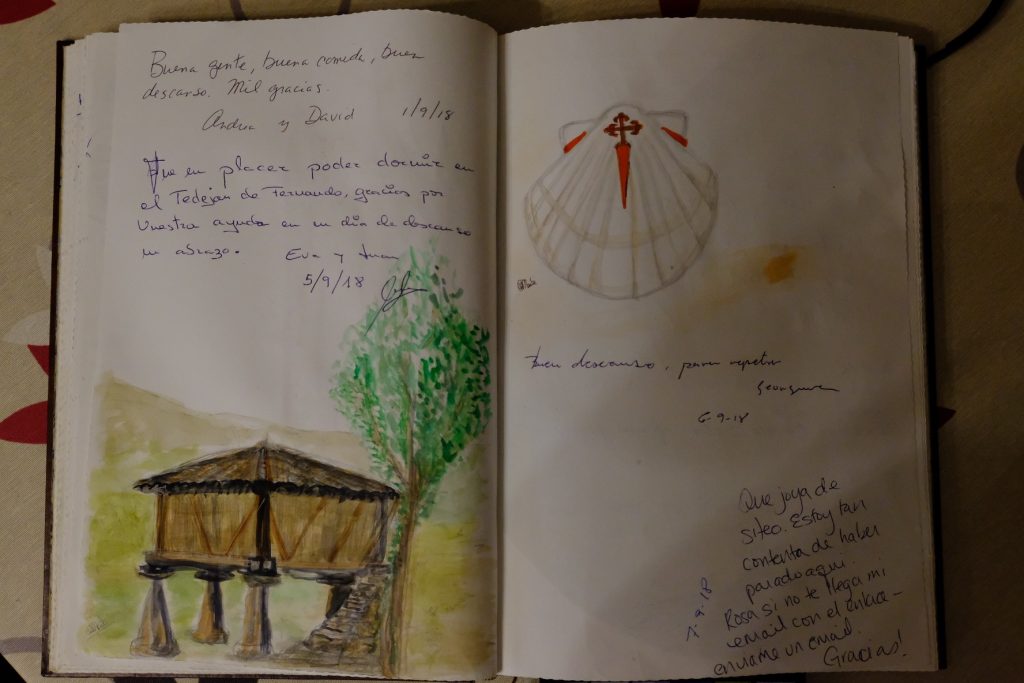 Buena gente, buena comida, buen
descanso. Mil gracias.
Andrea y David 1/9/18
Fue un placer poder dormir en
el Tedeján de Fernando, gracias por
vuestra ayuda en un día de descanso
un abrazo.
Eva y
5/9/18
Buen descanso, para repetir
6-9-18
Que joya de
sitio. Estoy tan
contenta de haber
parado aquí.
Rosa si no te llega mi
email con el enlace -
enviame un email.
Gracias!
7-9-18